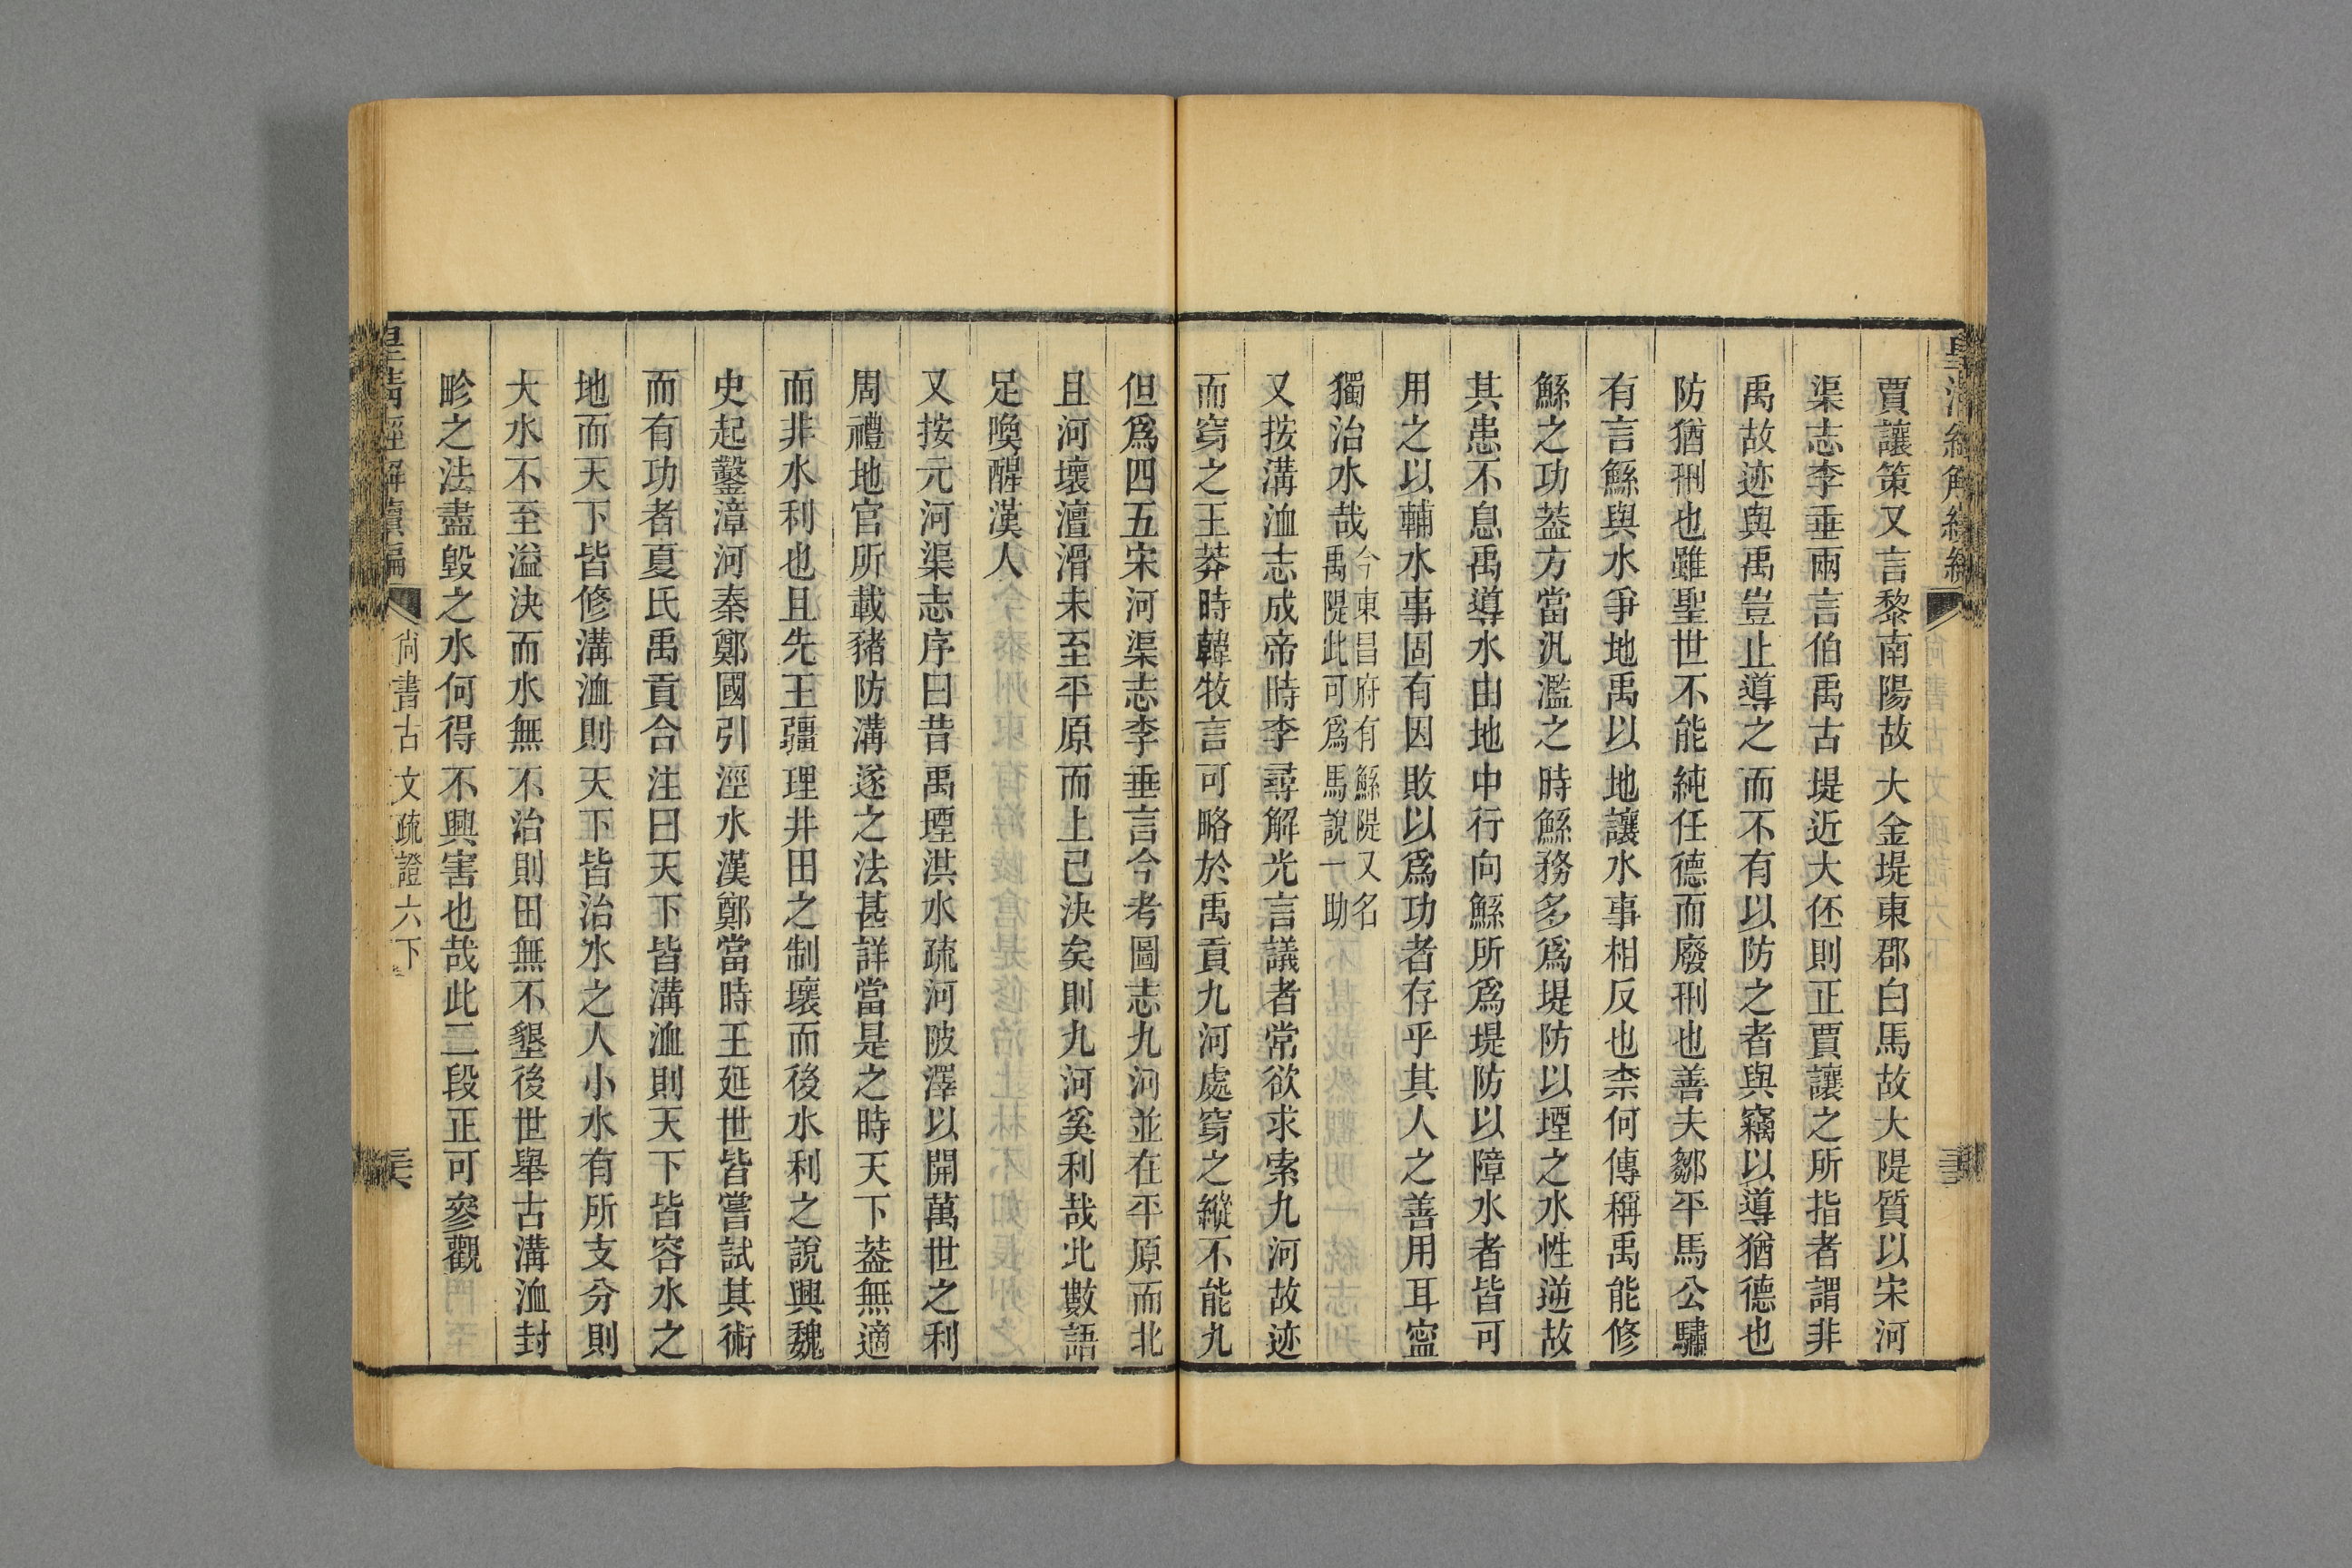 賈讓策又言黎南陽故大金堤東郡白馬故大隄質以宋河
渠志李垂兩言伯禹古堤近大伾則正賈讓之所指者謂非
禹故迹與禹豈止導之而不有以防之者與竊以導猶德也
防猶刑也雖聖世不能純任德而廢刑也善夫鄒平馬公驌
有言鯀與水爭地禹以地讓水事相反也柰何傳稱禹能修
鯀之功葢方當汎濫之時鯀務多爲堤防以堙之水性逆故
其患不息禹導水由地中行向鯀所爲堤防以障水者皆可
用之以輔水事固有因敗以爲功者存乎其人之善用耳寍
獨治水哉今東昌府有鯀隄又名
禹隄此可爲馬說一助
又按溝洫志成帝時李尋解光言議者常欲求索九河故迹
而窮之王莽時韓牧言可略於禹貢九河處窮之縱不能九
但爲四五宋河渠志李垂言今考圖志九河並在平原而北
且河壞澶滑未至平原而上已決矣則九河奚利哉此數語
足喚醒漢人
又按元河渠志序曰昔禹堙洪水疏河陂澤以開萬世之利
周禮地官所載豬防溝遂之法甚詳當是之時天下葢無適
而非水利也且先王疆理井田之制壞而後水利之說興魏
史起鑿漳河秦鄭國引涇水漢鄭當時王延世皆嘗試其術
而有功者夏氏禹貢合注曰天下皆溝洫則天下皆容水之
地而天下皆修溝洫則天下皆治水之人小水有所支分則
大水不至溢決而水無不治則田無不墾後世舉古溝洫封
畛之法盡毀之水何得不興害也哉此二段正可參觀
皇清經解續編
尚書古文疏證六下